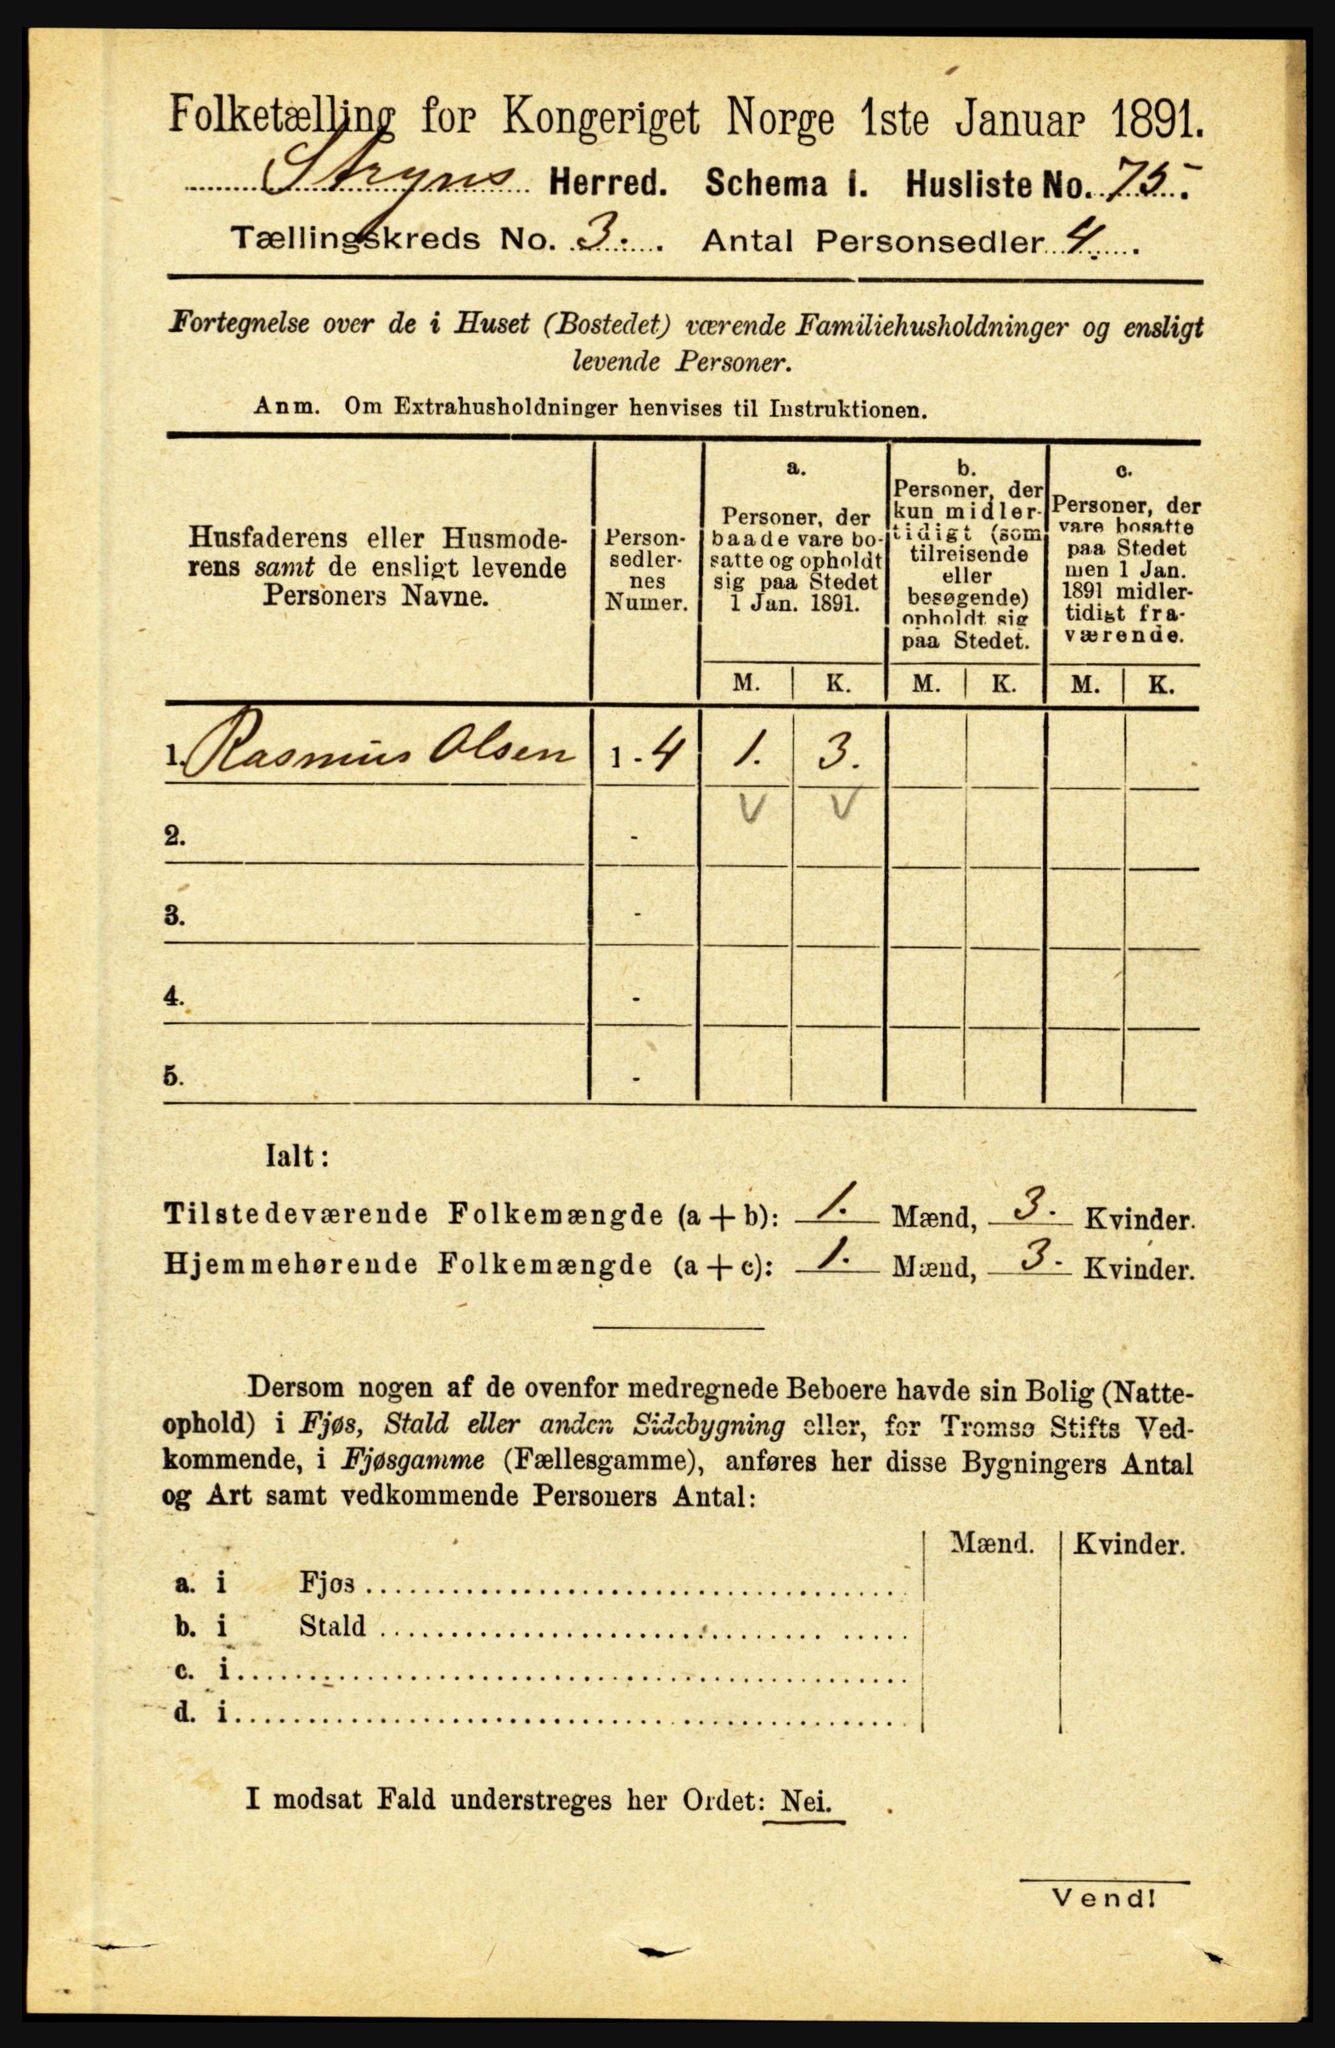 Folketælling for Kongeriget Norge 1ste Januar 1891.
Stryns Herred. Schema I. Husliste No. 75.
Tællingskreds No. 3. Antal Personsedler 4.
Fortegnelse over de i Huset (Bostedet) værende Familiehusholdninger og ensligt
levende Personer.
Anm. Om Extrahusholdninger henvises til Instruktionen.
Husfaderens eller Husmode-
rens samt de ensligt levende
Personers Navne.
Person-
sedler-
nes
Numer.
a.
Personer, der
baade vare bo-
satte og opholdt
sig paa Stedet
1 Jan. 1891.
b.
Personer, der
kun midler-
tidigt (som
tilreisende
eller
besøgende)
opholdt sig
paa Stedet.
c.
Personer, der
vare bosatte
paa Stedet
men 1 Jan.
1891 midler-
tidigt fra-
værende.
M. K. M. K. M. K.
1. Rasmus Olsen 1 - 4 1. 3.
V V
2. -
3. -
4. -
5. -
Ialt:
Tilstedeværende Folkemængde (a + b): 1. Mænd, 3. Kvinder.
Hjemmehørende Folkemængde (a + c): 1. Mænd, 3. Kvinder.
Dersom nogen af de ovenfor medregnede Beboere havde sin Bolig (Natte-
ophold) i Fjøs, Stald eller anden Sidebygning eller, for Tromsø Stifts Ved-
kommende, i Fjøsgamme (Fællesgamme), anføres her disse Bygningers Antal
og Art samt vedkommende Personers Antal:
Mænd. Kvinder.
a. i Fjøs
b. i Stald
c. i
d. i
I modsat Fald understreges her Ordet: Nei.
Vend!